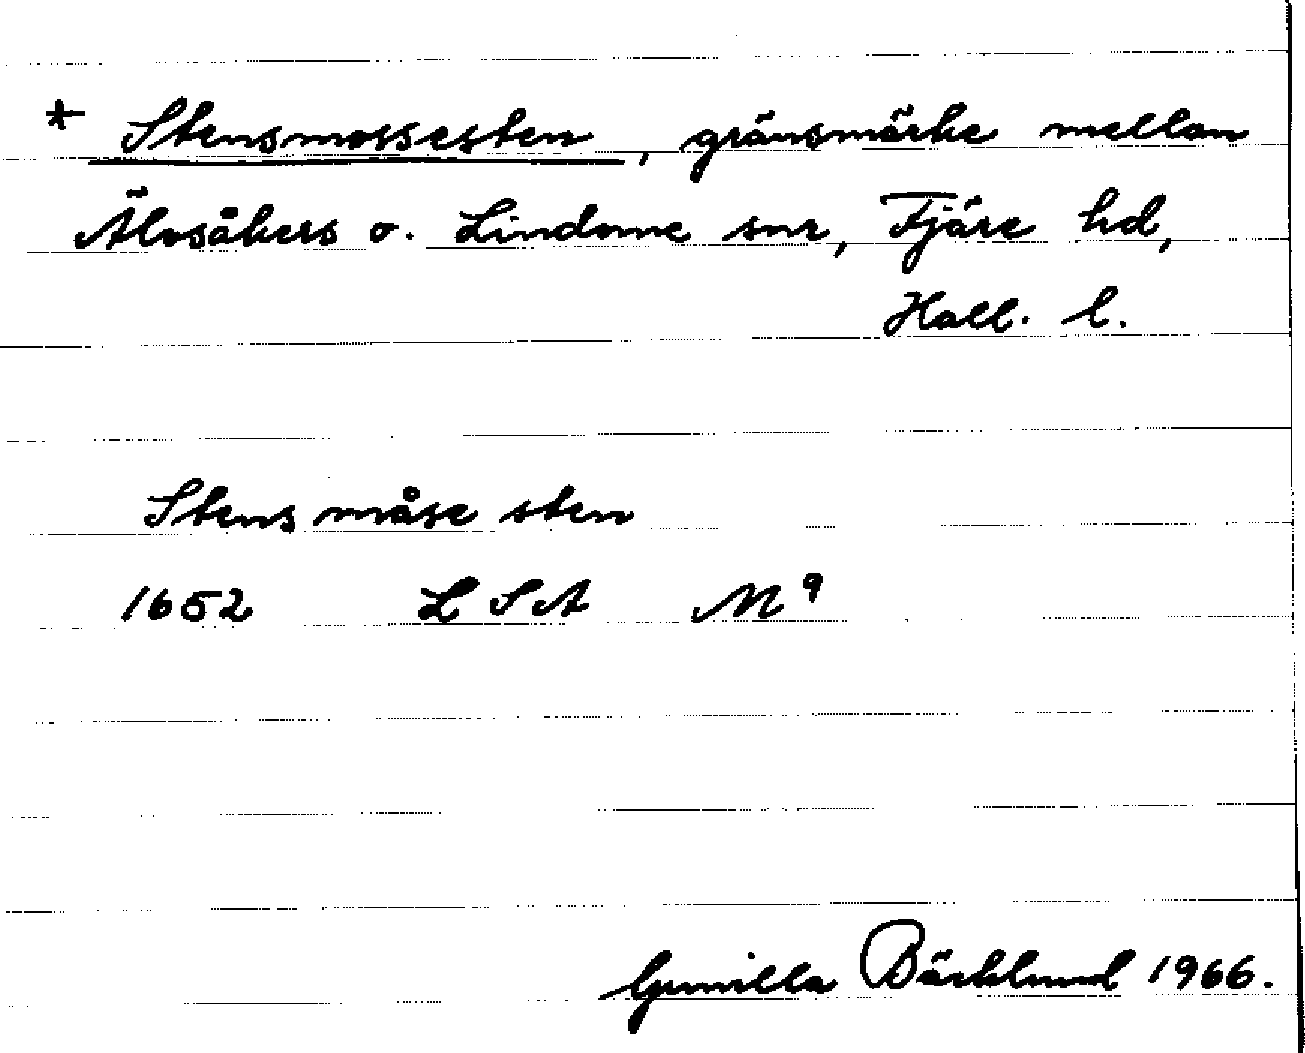 * Stensmossesten, gränsmärke mellan
Älvsåkers o. Lindome snr, Fjäre hd,
Hall. l.
Stens måse sten
1652 LSA M⁹
Gunilla Bäcklund 1966.